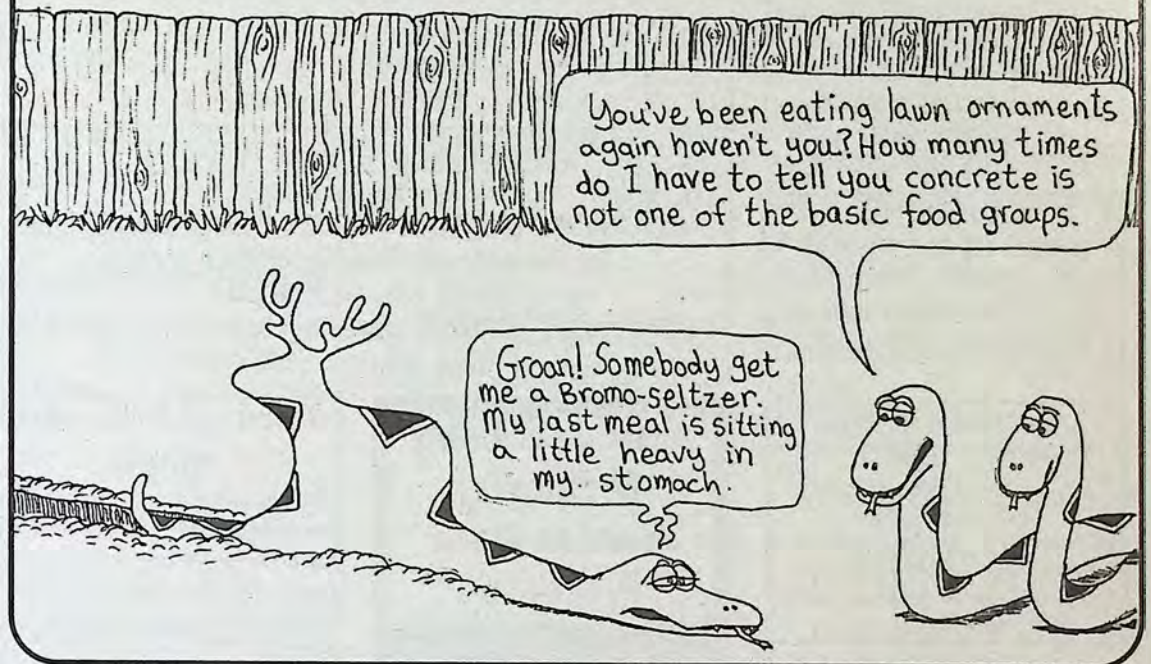 You've been eating lawn ornaments
again haven't you? How many times
do I have to tell you concrete is
not one of the basic food groups.
Groan! Somebody get
me a Bromo-seltzer.
My last meal is sitting
a little heavy in
my stomach.